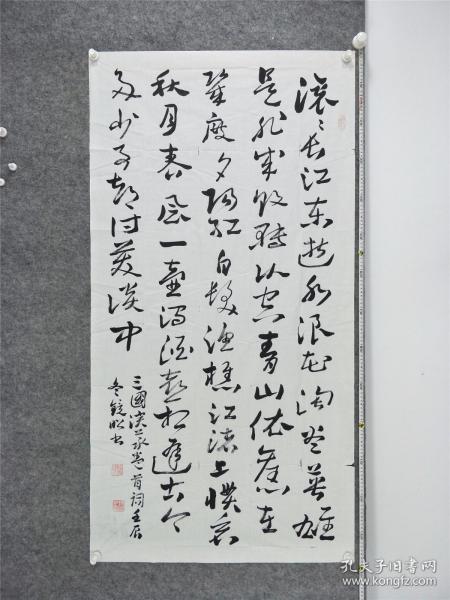 滚滚长江东逝水浪花淘尽英雄
是非成败转头空青山依旧在
几度夕阳红白发渔樵江渚上惯看
秋月春风一壶浊酒喜相逢古今
多少事都付笑谈中
三國演义卷首词壬辰
冬镜昭书
孔夫子旧书网
www.kongfz.com